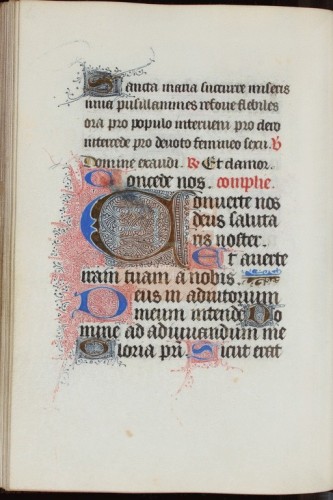 Sancta maria succurre miseris
iuua pusillanimes refoue flebiles
ora pro populo interueni pro clero
intercede pro deuoto femineo sexu. V
Domine exaudi. R Et clamor.
Concede nos. comple.
Conuerte nos
deus saluta
ris noster.
Et auerte
iram tuam a nobis.
Deus in adiutorium
meum intende Do
mine ad adiuuandum me
Gloria pri. Sicut erat